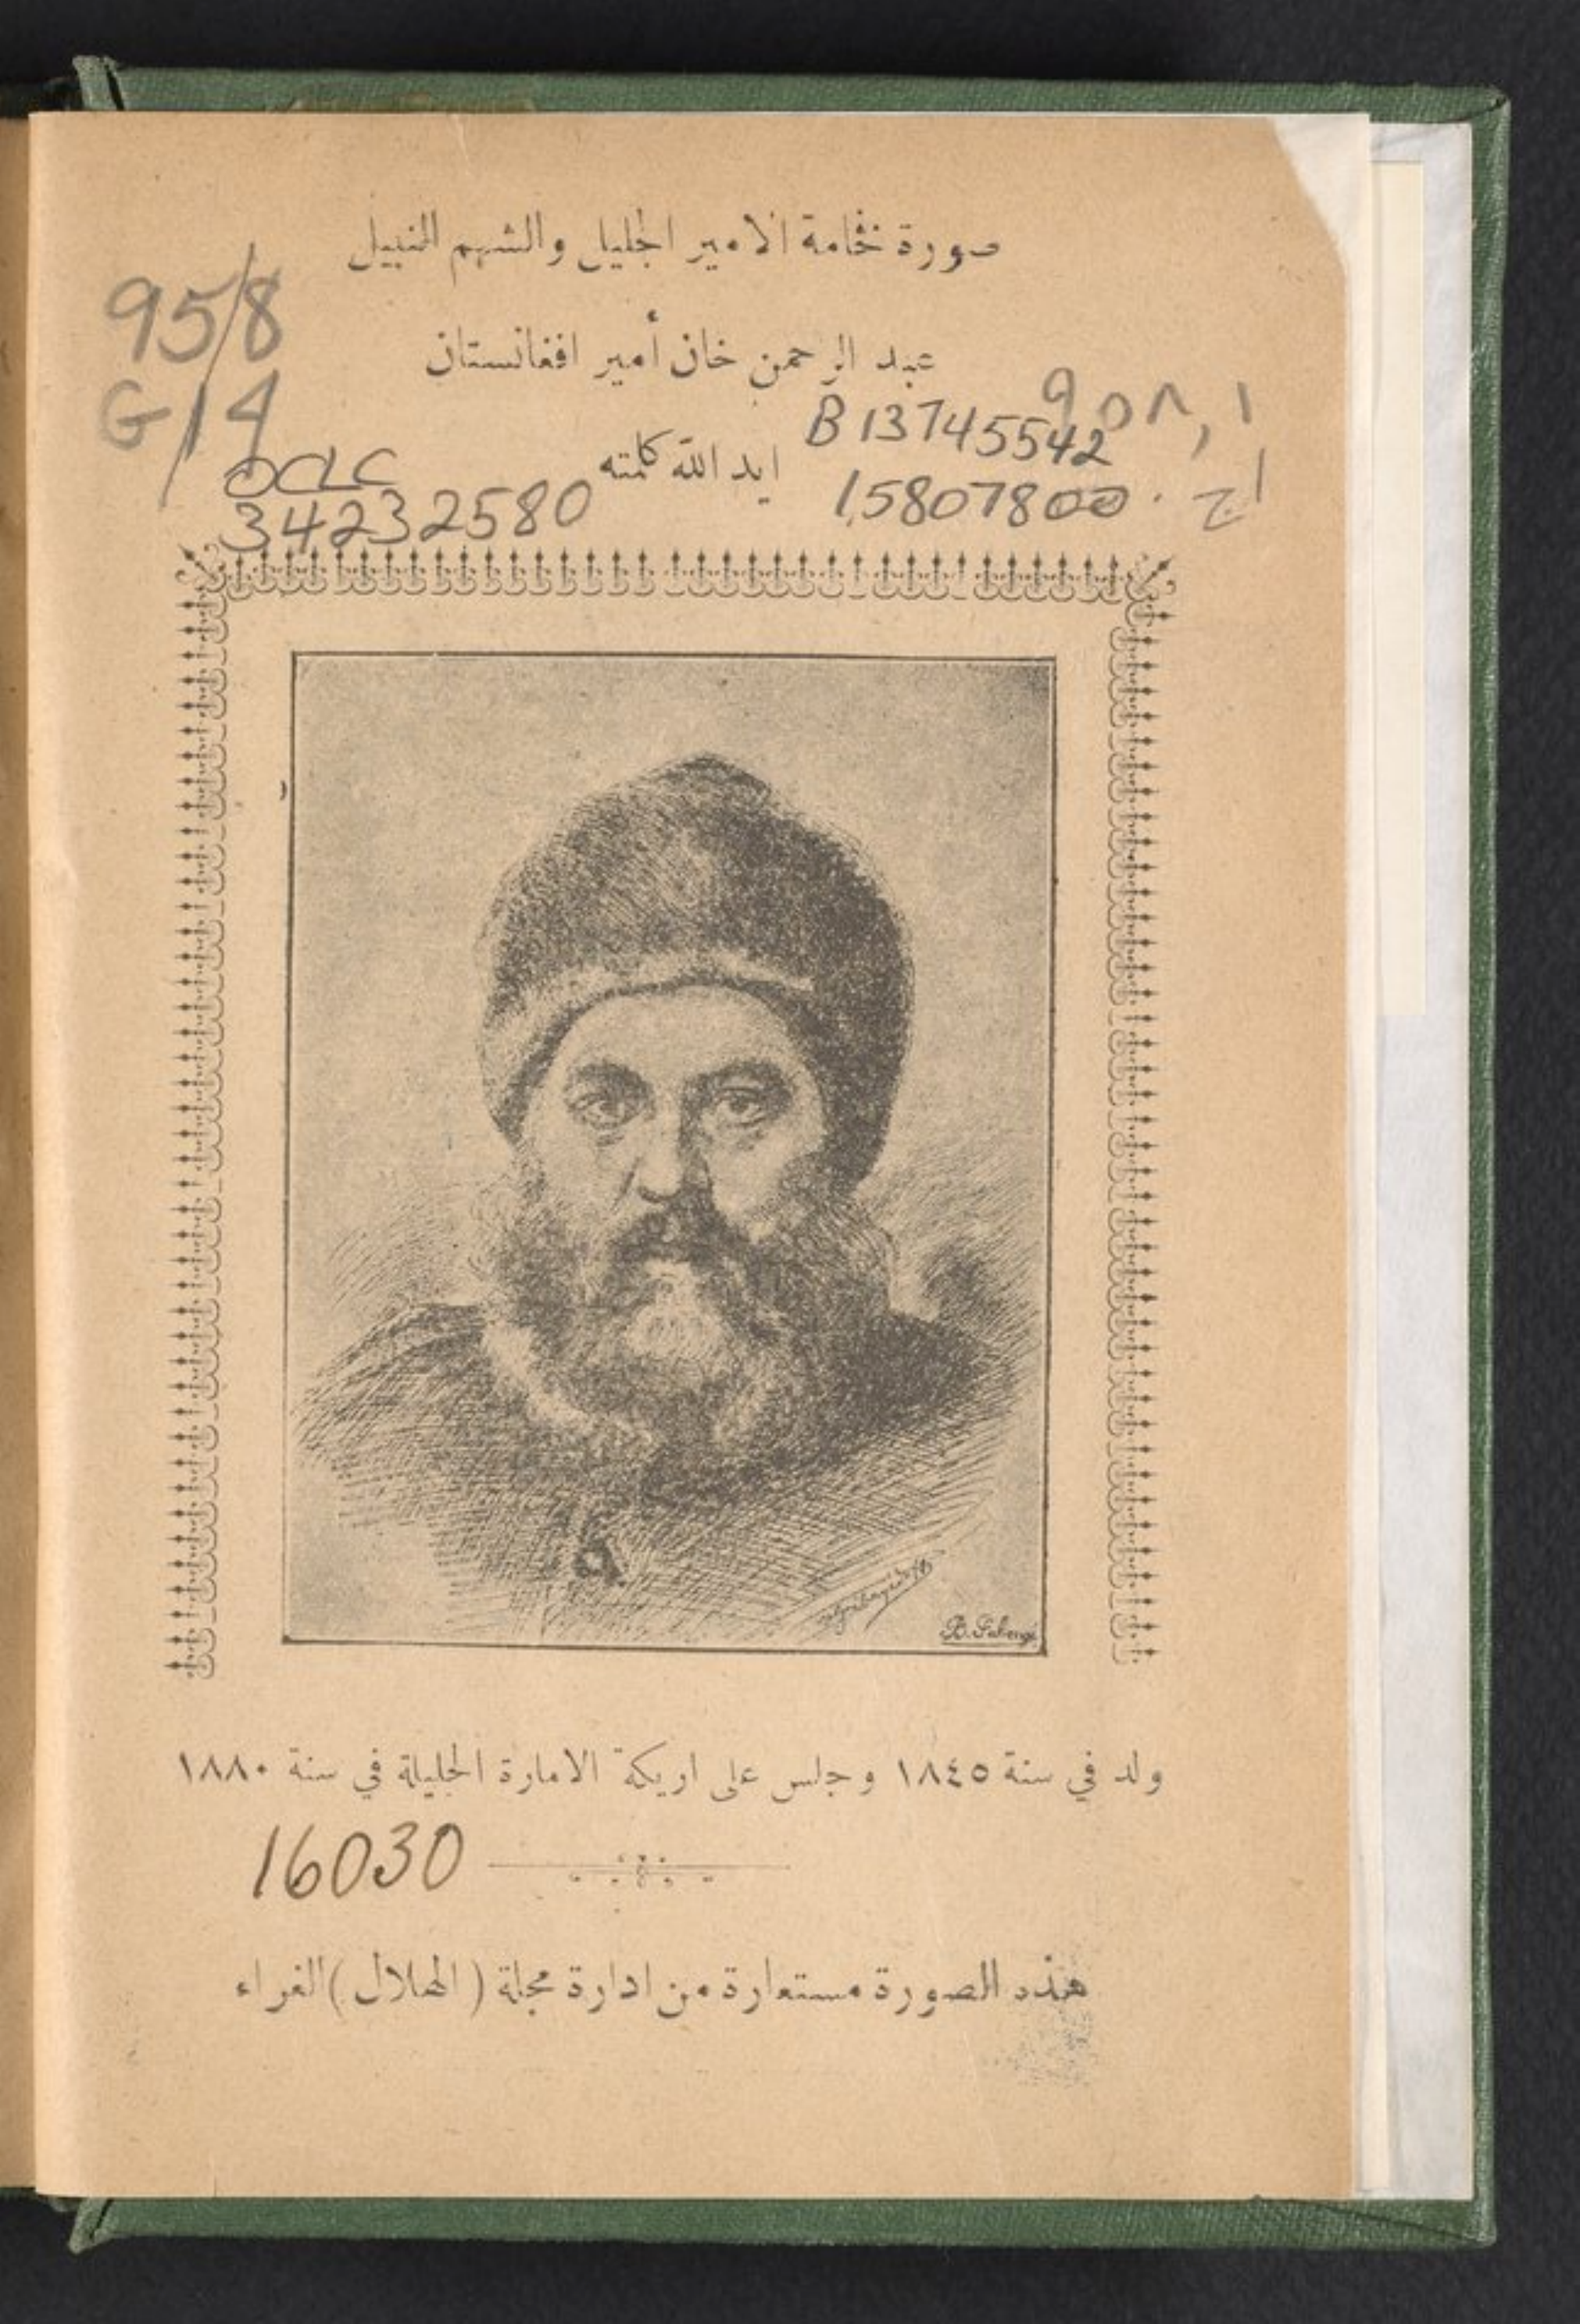 صورة فخامة الامير الجليل والشهم النبيل
958
G14
عبد الرحمن خان أمير افغانستان
٩٥٨,١
B13745542
ايد الله كلمته
OCLC
34232580
15807800
ا ج
B.
ولد في سنة ١٨٤٥ وجلس على اريكة الامارة الجليلة في سنة ١٨٨٠
16030
هذه الصورة مستعارة من ادارة مجلة ( الهلال ) الغراء